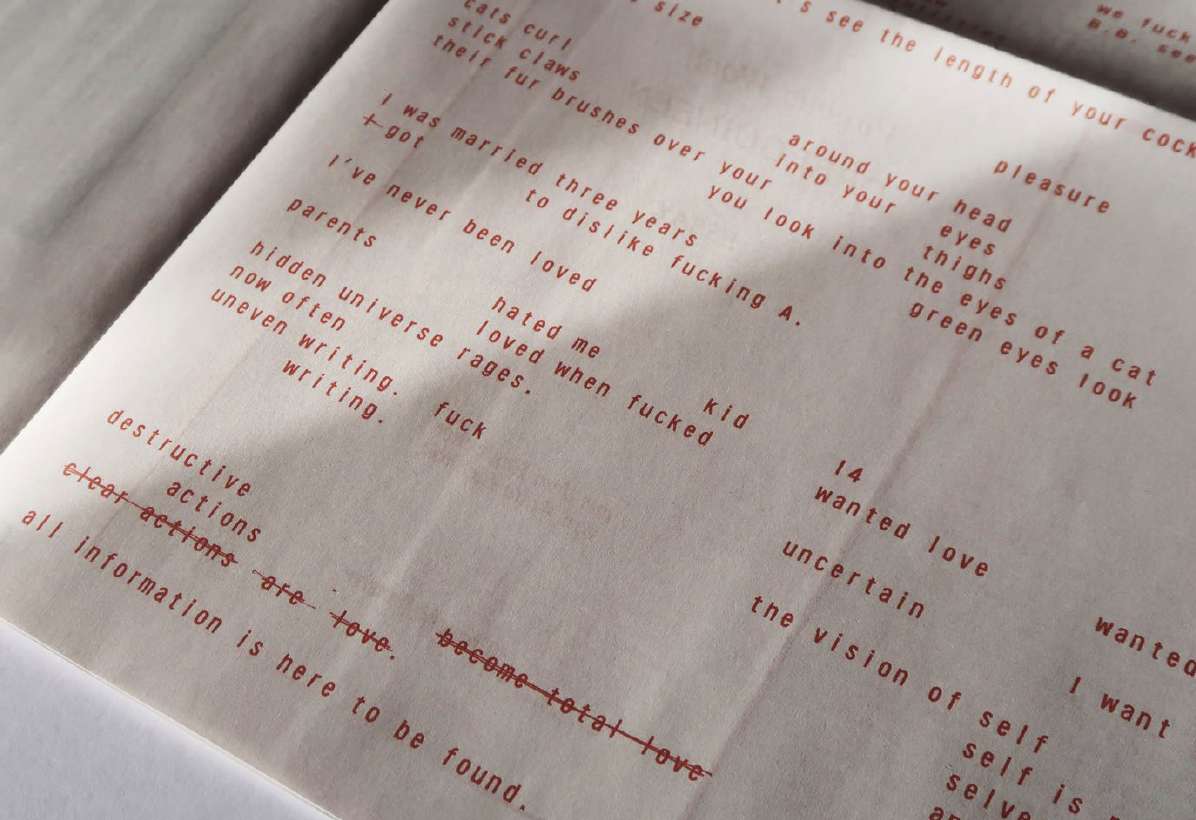 's see the length of your cock
size pleasure
cats curl around your head
stick claws into your eyes
their fur brushes over your thighs
you look into the eyes of a cat
green eyes look
I was married three years
I got to dislike fucking A.
I've never been loved
parents hated me kid 14
loved when fucked wanted love wanted
hidden universe rages.
now often
uneven writing. fuck uncertain I want
writing. the vision of self
self is
destructive
actions
clear actions are love. become total love
all information is here to be found.
we fuck
B.B.